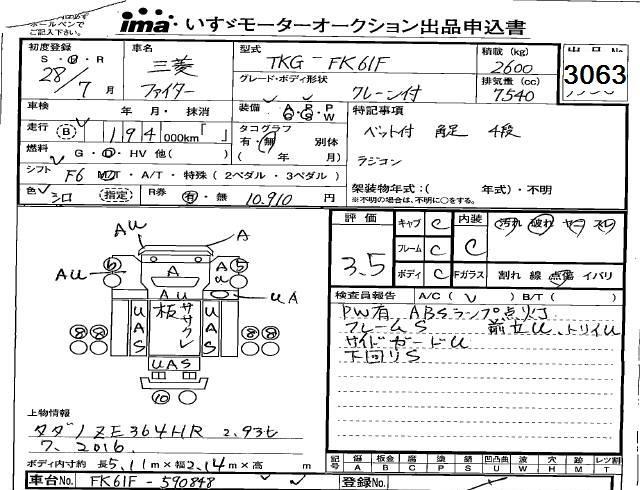 ボールペンで
ご記入下さい。
ima いすゞモーターオークション出品申込書
初度登録 車名 型式 積載(kg) 出品No
S・H・R 三菱 TKG-FK61F 2600 3063
28/7月 ファイター グレード・ボディ形状 クレーン付 排気量(cc) 7540
車検 年・月・抹消 装備 A/C P/S P/W 特記事項
走行 B 194000km タコグラフ 有・無 別体 (年/月) ベット付 角足 4段
燃料 G・D・HV 他( ) ラジコン
シフト F6 M/T・A/T・特殊(2ペダル・3ペダル)
色 シロ 指定 R券 有・無 10,910円 架装物年式:( 年式)・不明
※不明の場合は、不明に○をする。
評価 3.5 キャブ C 内装 C 汚れ 破れ ヤニ スレ
フレーム C
ボディ C Fガラス 割れ 線 点傷 イバリ
検査員報告 A/C( ) B/T( )
PW有 ABSランプ点灯
フレームS 前立U、トリイU
サイドガードU
下回りS
AU A
6 A A 5
AU A U
AU UA
UAS 板ササクレ UAS
8 8 8 8
UAS
10
上物情報
タダノZE364HR 2.93t
7. 2016.
ボディ内寸約 長5.11m×幅2.14m×高 m
記号 傷A 板金B 腐C 塗P 錆S 凹凸曲U 波W 穴H 跡M レンズ割T
車台No. FK61F-590848 登録No.